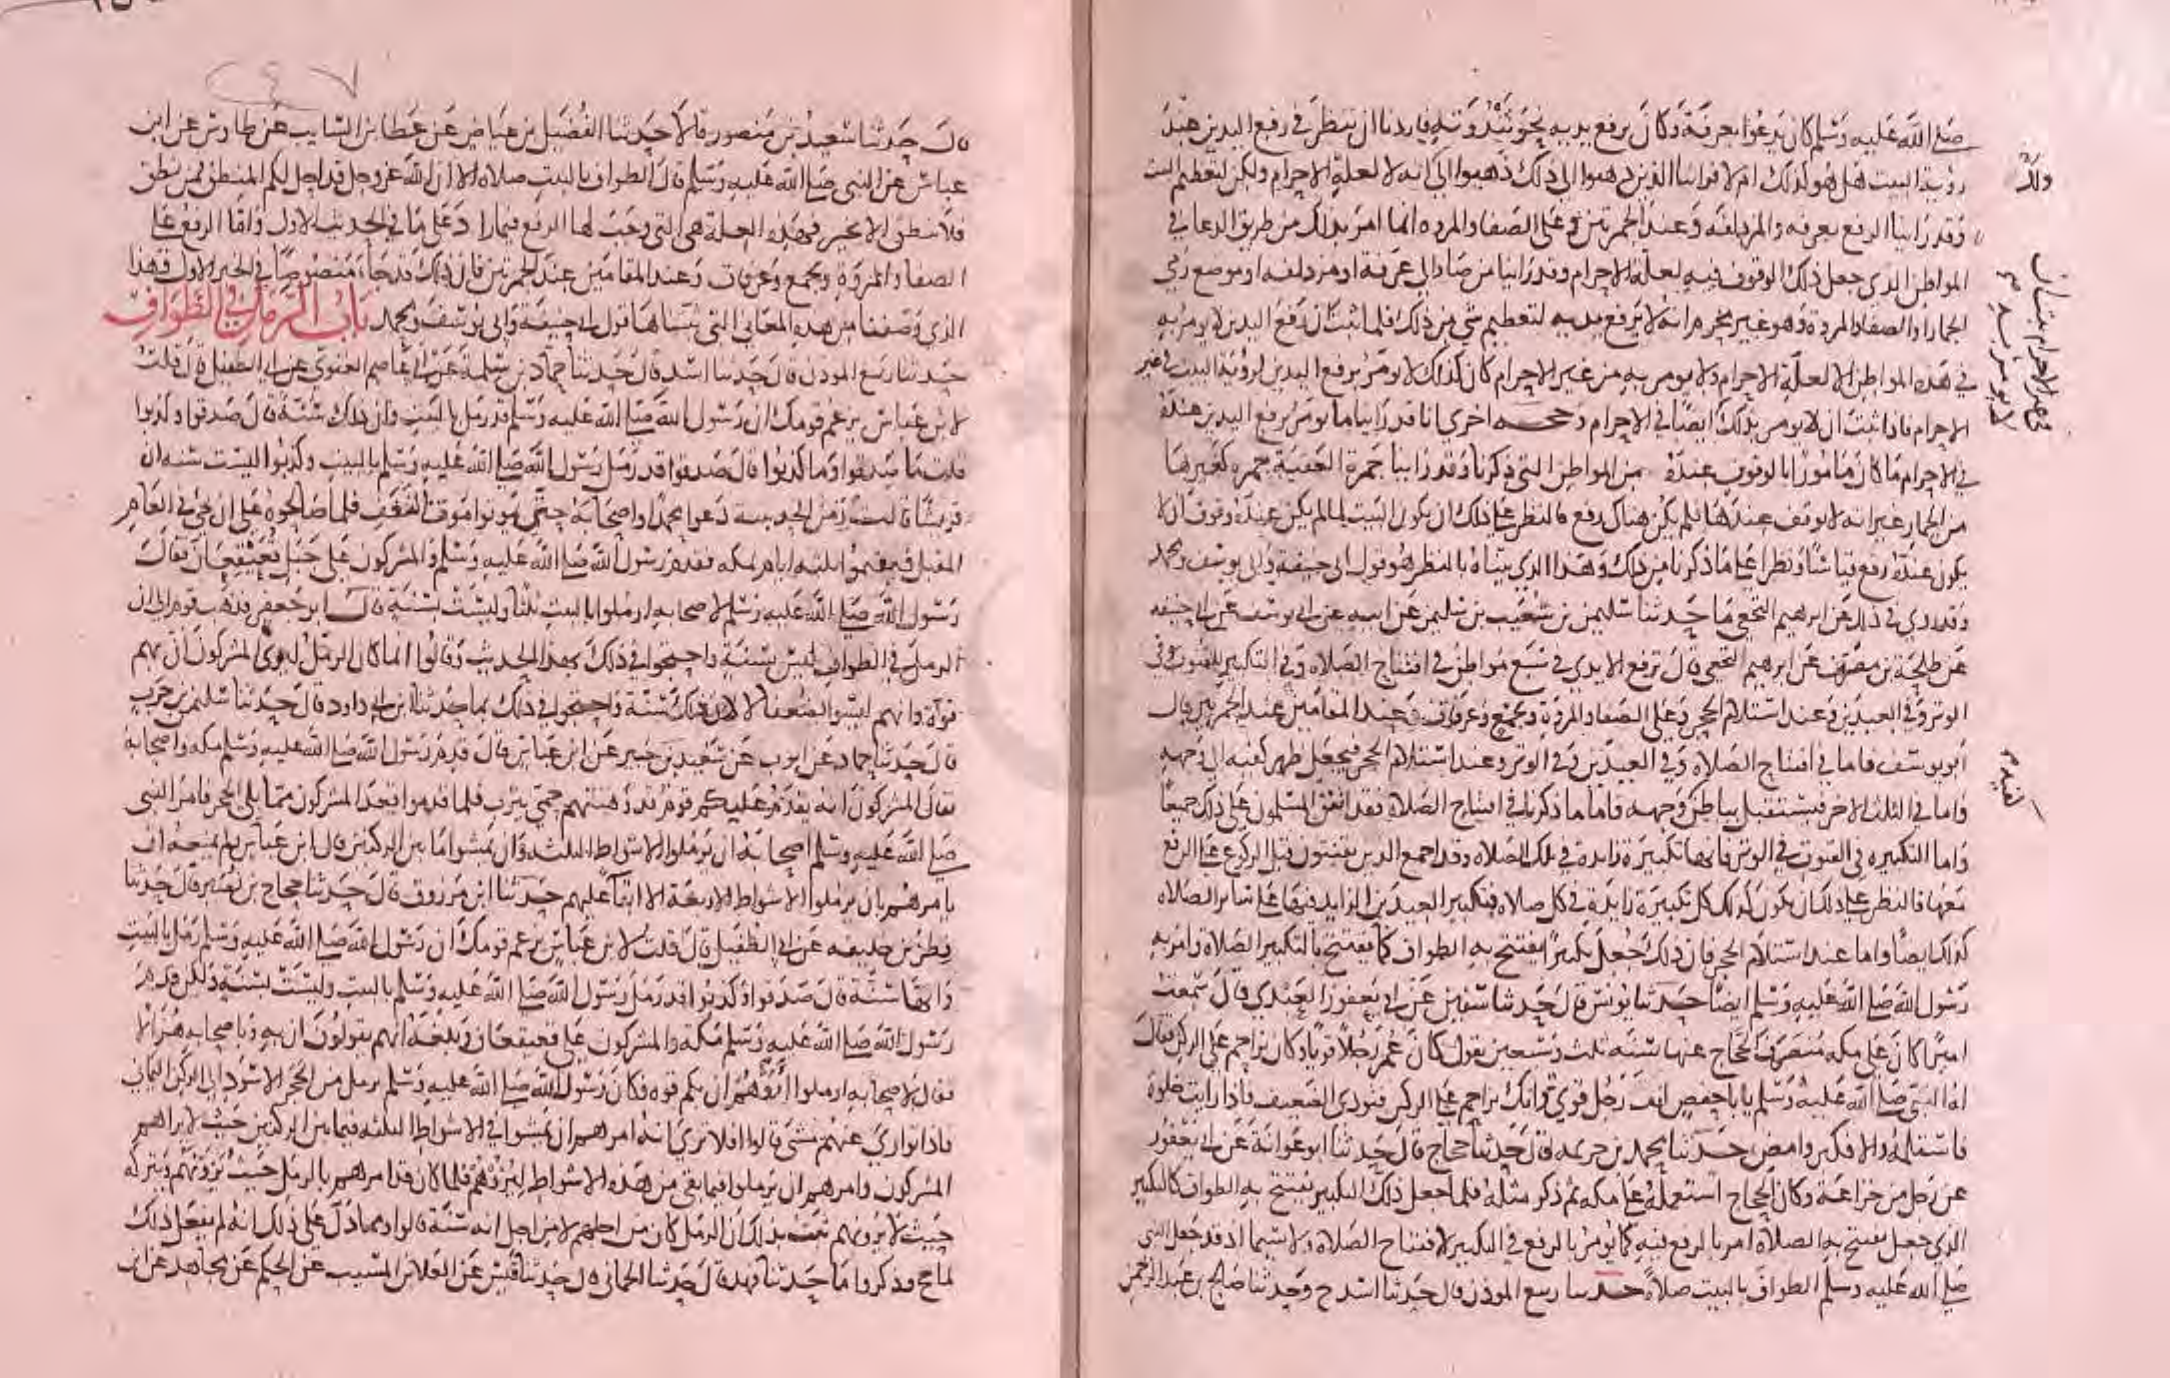 صلى الله عليه وسلم كان يدعوا بعرفة وكان يرفع يديه نحو ثندوته فاردنا ان ننظر في رفع اليدين عند
رؤية البيت هل هو كذلك ام لا فراينا الذين ذهبوا الى ذلك ذهبوا الى انه لا لعلة الاحرام ولكن لتعظيم البيت
وقد راينا الرفع بعرفه والمزدلفه وعند الجمرتين وعلى الصفا والمروه انما امر بذلك من طريق الدعا في
المواطن الذي جعل ذلك الوقوف فيه لعلة الاحرام وقد راينا من صار الى عرفة او مزدلفه او موضع رمي
الجمار او الصفا والمروة وهو غير محرم انه لا يرفع يديه لتعظيم شي من ذلك فلما ثبت ان رفع اليدين لا يومر به
في هذه المواطن الا لعلة الاحرام ولا يومر به من غير الاحرام كان كذلك لا يومر برفع اليدين لرؤية البيت في غير
الاحرام فاذا ثبت ان لا يومر بذلك ايضا في الاحرام وحجه اخرى انا قد راينا ما يومر برفع اليدين عنده
في الاحرام ما كان مامورا بالوقوف عنده من المواطن التي ذكرنا وقد راينا جمرة العقبة جمره كغيرها
من الجمار غير انه لا يوقف عندها فلم يكن هناك رفع فالنظر على ذلك ان يكون البيت لما لم يكن عنده وقوف ان لا
يكون عنده رفع قياسا ونظرا على ما ذكرنا من ذلك وهذا الذي بيناه بالنظر هو قول ابي حنيفة وابي يوسف ومحمد
وقد روي في ذلك عن ابرهيم النخعي ما حدثنا سليمن بن شعيب بن سليمن عن ابيه عن ابي يوسف عن ابي حنيفه
عن طلحة بن مصرف عن ابرهيم النخعي قال ترفع الايدي في سبع مواطن في افتتاح الصلاه وفي التكبير للقنوت في
الوتر وفي العيدين وعند استلام الحجر وعلى الصفا والمروة وبجمع وعرفات وعند المقامين عند الجمرتين قال
ابو يوسف فاما في افتتاح الصلاه وفي العيدين وفي الوتر وعند استلام الحجر فيجعل ظهر كفيه الى وجهه
واما في الثلث الاخر فيستقبل بباطن وجهه فاما ما ذكرنا في افتتاح الصلاه فقد اتفق المسلمون على ذلك جميعا
واما التكبيره في القنوت في الوتر فانها تكبيرة زايدة في تلك الصلاه وقد اجمع الذين يقنتون قبل الركوع على الرفع
معها فالنظر على ذلك ان يكون كذلك كل تكبيرة زايدة في كل صلاه فتكبير العيدين الزايد فيها على ساير الصلاه
كذلك ايضا واما عند استلام الحجر فان ذلك جعل تكبيرا يفتتح به الطواف كما يفتتح بالتكبير الصلاه وامر به
رسول الله صلى الله عليه وسلم ايضا حدثنا يونس قال حدثنا سفين عن ابي يعفور العبدي قال سمعت
اميرا كان على مكه منصرف الحجاج عنها سنة ثلث وسبعين يقول كان عمر رجلا قويا وكان يزاحم على الركن فقال
له النبي صلى الله عليه وسلم يا با حفص انت رجل قوي وانك تزاحم على الركن فتوذي الضعيف فاذا رايت خلوة
فاستلمه والا فكبر وامض حدثنا محمد بن خزيمه قال حدثنا حجاج قال حدثنا ابو عوانة عن ابي يعفور
عن رجل من خزاعة وكان الحجاج استعمله على مكه ثم ذكر مثله فلما جعل ذلك التكبير يفتتح به الطواف كالتكبير
الذي جعل يفتتح به الصلاه امر بالرفع فيه كما يومر بالرفع في التكبير لافتتاح الصلاه ولا سيما اذ قد جعل النبي
صلى الله عليه وسلم الطواف بالبيت صلاة حدثنا ربيع الموذن قال حدثنا اسد ح وحدثنا صالح بن عبد الرحمن
قال حدثنا سعيد بن منصور قالا حدثنا الفضيل بن عياض عن عطا بن السايب عن طاوس عن ابن
عباس عن النبي صلى الله عليه وسلم قال الطواف بالبيت صلاه الا ان الله عز وجل قد احل لكم المنطق فمن نطق
فلا ينطق الا بخير فهذه العلة هي التي وجبت لها الرفع فيما زاد على ما في الحديث الاول واما الرفع على
الصفا والمروة وبجمع وعرفات وعند المقامين عند الجمرتين فان ذلك قد جاء منصوصا في الخبر الاول فهذا
الذي وصفنا من هذه المعاني التي بيناها قول ابي حنيفة وابي يوسف ومحمد باب الرمل في الطواف
حدثنا ربيع الموذن قال حدثنا اسد قال حدثنا حماد بن سلمة عن ابي عاصم الغنوي عن ابي الطفيل قال قلت
لابن عباس يزعم قومك ان رسول الله صلى الله عليه وسلم قد رمل بالبيت وان ذلك سنة قال صدقوا وكذبوا
قلت ما صدقوا وما كذبوا قال صدقوا قد رمل رسول الله صلى الله عليه وسلم بالبيت وكذبوا ليست سنه ان
قريشا قالت زمن الحديبيه دعوا محمدا واصحابه حتى يموتوا موت النغف فلما صالحوه على ان يجي في العام
المقبل فيقيموا ثلثه ايام بمكه فقدم رسول الله صلى الله عليه وسلم والمشركون على جبل قعيقعان فقال
رسول الله صلى الله عليه وسلم لاصحابه ارملوا بالبيت ثلثا وليست بسنة قال ابو جعفر فذهب قوم الى ان
الرمل في الطواف ليس بسنة واحتجوا في ذلك بهذا الحديث وقالوا انما كان الرمل ليرى المشركون ان بهم
قوة وانهم ليسوا بضعفا لا لان ذلك سنة واحتجوا في ذلك بما حدثنا ابن ابي داود قال حدثنا سليمن بن حرب
قال حدثنا حماد عن ايوب عن سعيد بن جبير عن ابن عباس قال قدم رسول الله صلى الله عليه وسلم مكه واصحابه
فقال المشركون انه يقدم عليكم قوم قد وهنتهم حمى يثرب فلما قدموا قعد المشركون مما يلي الحجر فامر النبي
صلى الله عليه وسلم اصحابه ان يرملوا الاشواط الثلثه وان يمشوا ما بين الركنين قال ابن عباس ولم يمنعه ان
يامرهم بان يرملوا الاشواط الاربعة الا ابقا عليهم حدثنا ابن مرزوق قال حدثنا حجاج بن نصير قال حدثنا
فطر بن خليفه عن ابي الطفيل قال قلت لابن عباس يزعم قومك ان رسول الله صلى الله عليه وسلم رمل بالبيت
وانها سنة قال صدقوا وكذبوا قد رمل رسول الله صلى الله عليه وسلم بالبيت وليست بسنة ولكن قدم
رسول الله صلى الله عليه وسلم مكة والمشركون على قعيقعان وبلغه انهم يقولون ان به وباصحابه هزالا
فقال لاصحابه ارملوا اروهم ان بكم قوه فكان رسول الله صلى الله عليه وسلم يرمل من الحجر الاسود الى الركن اليماني
فاذا توارى عنهم مشى قالوا افلا ترى انه امرهم ان يمشوا في الاشواط الثلثه فيما بين الركنين حيث لا يراهم
المشركون وامرهم ان يرملوا فيما بقي من هذه الاشواط ليروهم فلما كان قد امرهم بالرمل حيث يرونهم وبتركه
حيث لا يرونهم ثبت بذلك ان الرمل كان من اجلهم لا من اجل انه سنة قالوا ومما دل على ذلك انه لم يفعل ذلك
لما حج وذكروا ما حدثنا فهد قال حدثنا الحماني قال حدثنا قيس عن العلا بن المسيب عن الحكم عن مجاهد عن ابن